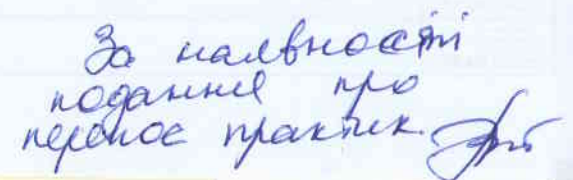 За наявності
подання про
перенос практик.